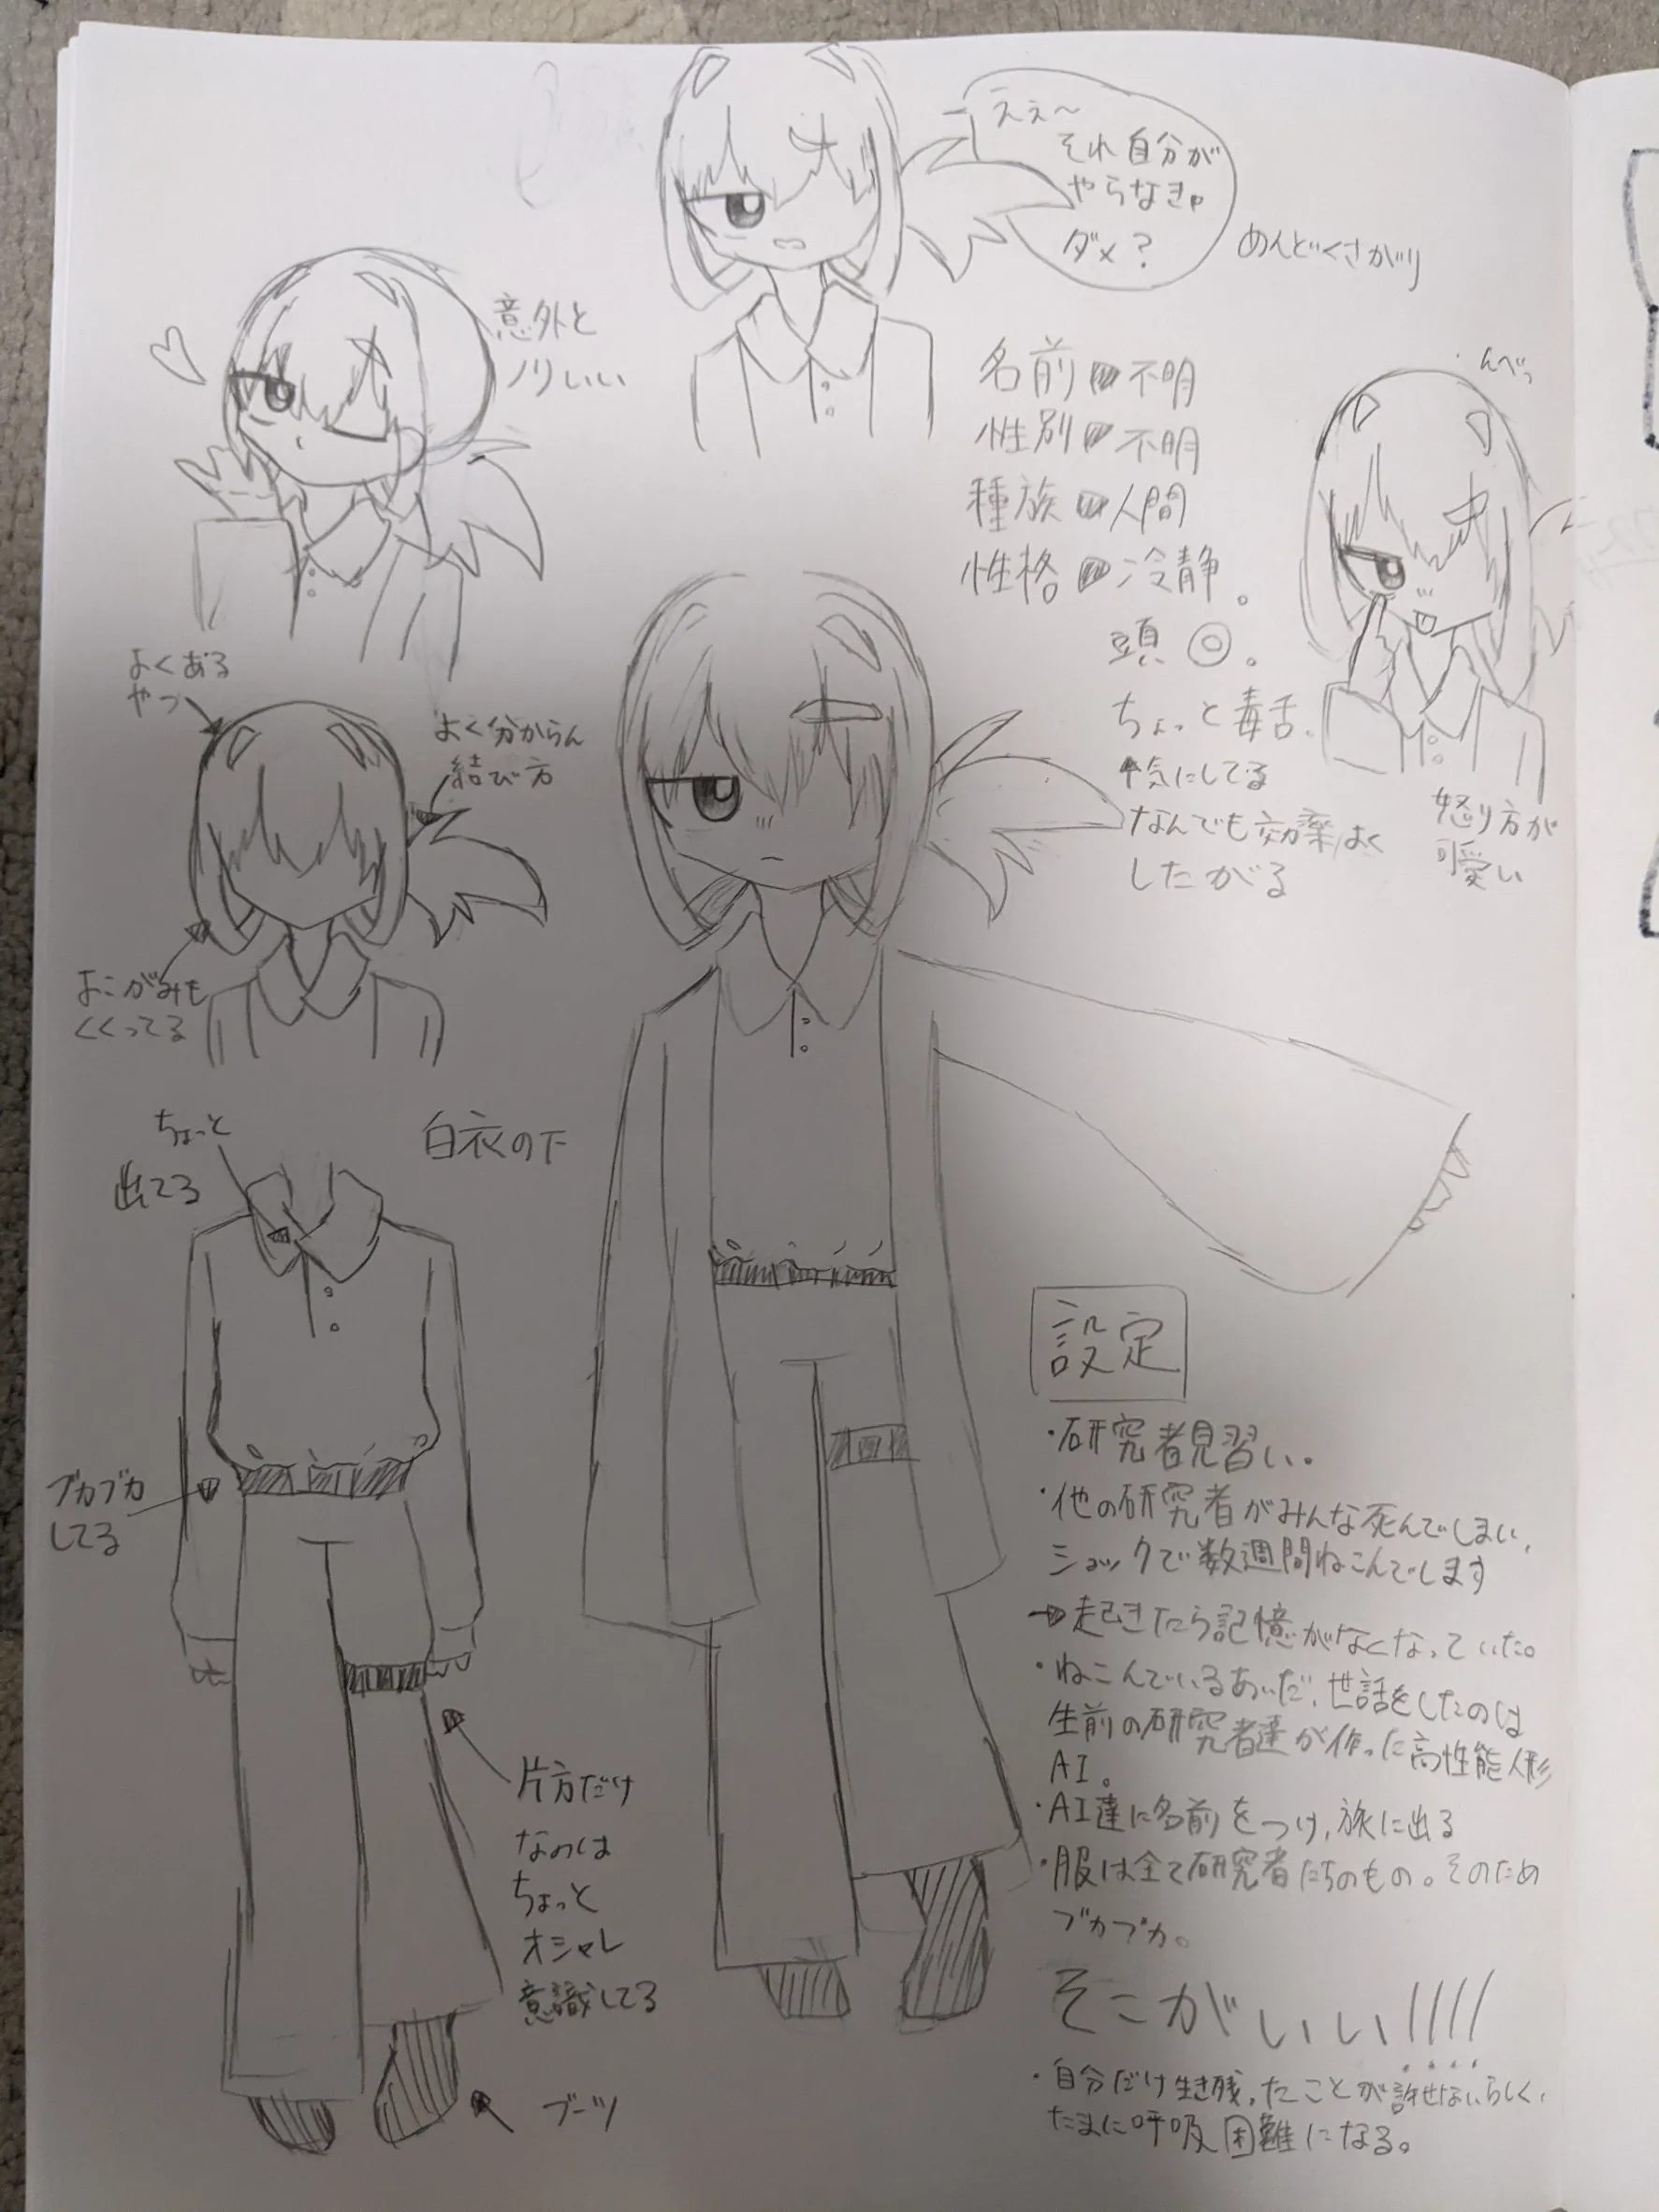 ええ〜
それ自分が
やらなきゃ
ダメ？
めんどくさがり
意外と
ノリいい
名前→不明
性別→不明
種族→人間
性格→冷静。
頭◎。
ちょっと毒舌。
↑気にしてる
なんでも効率よく
したがる
んべっ
怒り方が
可愛い
よくある
やつ
よく分からん
結び方
よこがみも
くくってる
白衣の下
ちょっと
出てる
ブカブカ
してる
片方だけ
なのは
ちょっと
オシャレ
意識してる
ブーツ
設定
・研究者見習い。
・他の研究者がみんな死んでしまい、
ショックで数週間ねこんでします
→起きたら記憶がなくなっていた。
・ねこんでいるあいだ、世話をしたのは
生前の研究者達が作った高性能人形
AI。
・AI達に名前をつけ、旅に出る
・服は全て研究者たちのもの。そのため
ブカブカ。
そこがいい!!!!
・自分だけ生き残ったことが許せないらしく、
たまに呼吸困難になる。